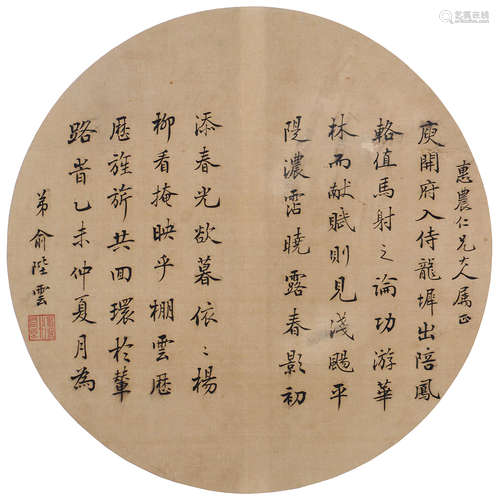 艺典在线
惠農仁兄大人属正
庾開府入侍龍墀出陪鳳
輅值馬射之論功游華
林而献賦則見淺颺平
隄濃霑曉露春影初
添春光欲暮依〻楊
柳看掩映乎棚雲歷
歷旌旂共回環於輦
路者乙未仲夏月為
弟俞陛雲